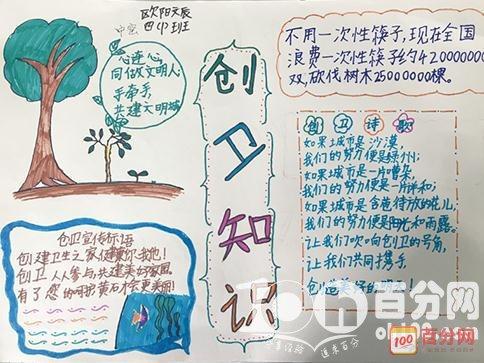 欧阳文辰
四(1)班
心连心,
同做文明人;
手牵手,
共建文明城
创
卫
知
识
不用一次性筷子,现在全国
浪费一次性筷子约420000000
双,砍伐树木25000000棵。
创卫诗歌
如果城市是沙漠,
我们的努力便是绿洲;
如果城市是一片嘈杂,
我们的努力便是一片祥和;
如果城市是含苞待放的花儿,
我们的努力便是阳光和雨露。
让我们吹响创卫的号角,
让我们共同携手,
创造美好的明天!
创卫宣传标语
创建卫生之家,促我他!
创卫人人参与,共建美好家园。
有了您的呵护黄石才会更美丽!
百分网
100
百分网